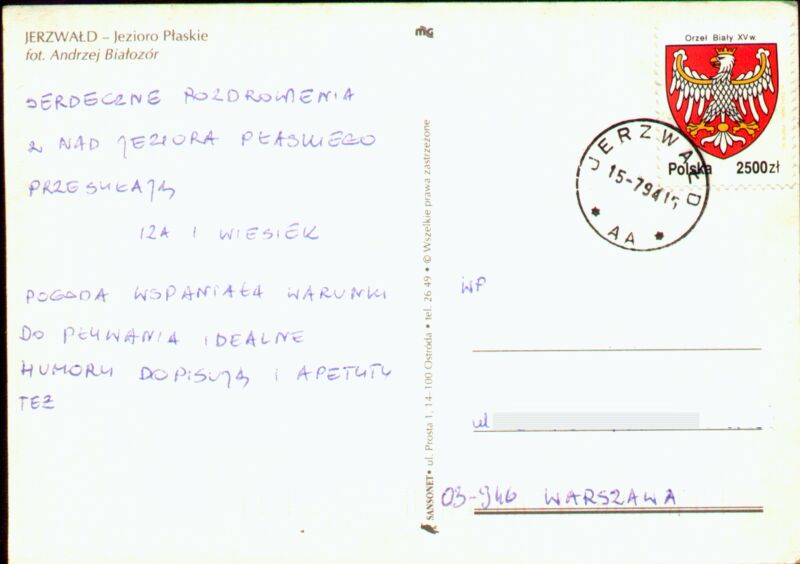 JERZWAŁD – Jezioro Płaskie
fot. Andrzej Białozór
SERDECZNE POZDROWIENIA
Z NAD JEZIORA PŁASKIEGO
PRZESYŁAJĄ
IZA I WIESIEK
POGODA WSPANIAŁA WARUNKI
DO PŁYWANIA IDEALNE
HUMORY DOPISUJĄ I APETYTY
TEŻ
SANSONET • ul. Prosta 1, 14-100 Ostróda • tel. 26 49 • © Wszelkie prawa zastrzeżone
Orzeł Biały XV w.
Polska 2500 zł
JERZWAŁD
15-7 94 15
* AA *
WP
ul
03-946 WARSZAWA